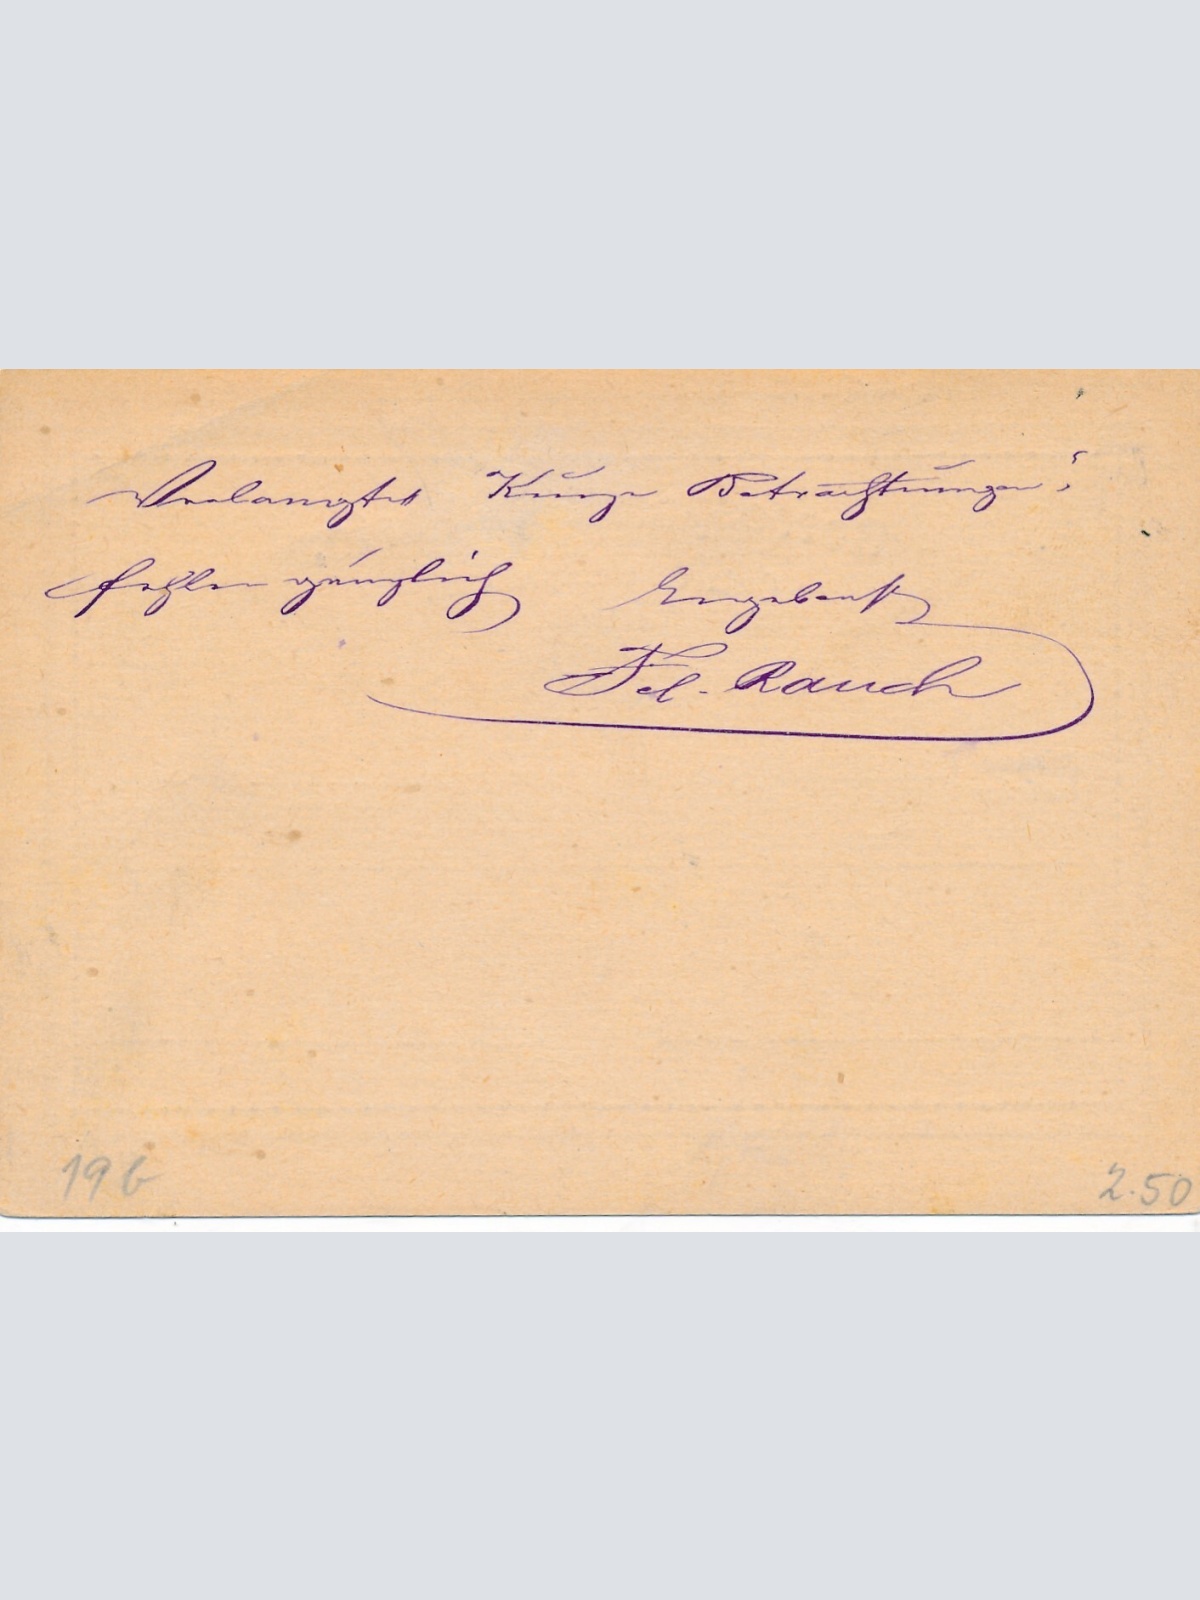 Verlangte „Kurze Betrachtungen“
fehlen gänzlich Ergebenst
Fel. Rauch
19 b
2.50